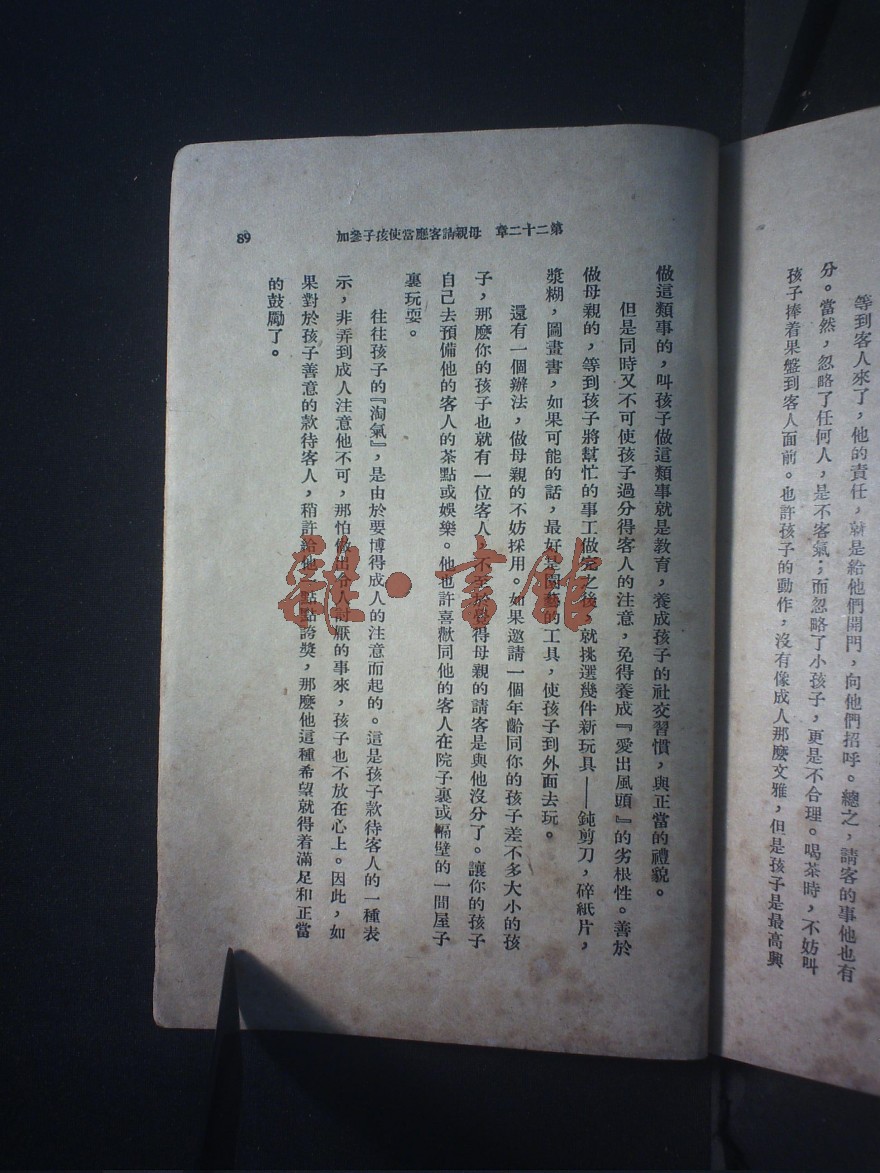 等到客人來了，他的責任，就是給他們開門，向他們招呼。總之，請客的事他也有
分。當然，忽略了任何人，是不客氣；而忽略了小孩子，更是不合理。喝茶時，不妨叫
孩子捧着果盤到客人面前。也許孩子的動作，沒有像成人那麽文雅，但是孩子是最高興
第二十二章　母親請客應當使孩子參加
89
做這類事的，叫孩子做這類事就是教育，養成孩子的社交習慣，與正當的禮貌。
但是同時又不可使孩子過分得客人的注意，免得養成『愛出風頭』的劣根性。善於
做母親的，等到孩子將幫忙的事工做完之後，就挑選幾件新玩具——鈍剪刀，碎紙片，
漿糊，圖畫書，如果可能的話，最好是園藝的工具，使孩子到外面去玩。
還有一個辦法，做母親的不妨採用。如果邀請一個年齡同你的孩子差不多大小的孩
子，那麽你的孩子也就有一位客人，不至於覺得母親的請客是與他沒分了。讓你的孩子
自己去預備他的客人的茶點或娛樂。他也許喜歡同他的客人在院子裏或隔壁的一間屋子
裏玩耍。
往往孩子的『淘氣』，是由於要博得成人的注意而起的。這是孩子款待客人的一種表
示，非弄到成人注意他不可，那怕做出令人討厭的事來，孩子也不放在心上。因此，如
果對於孩子善意的款待客人，稍許給他一點點誇獎，那麽他這種希望就得着滿足和正當
的鼓勵了。
雜·書館